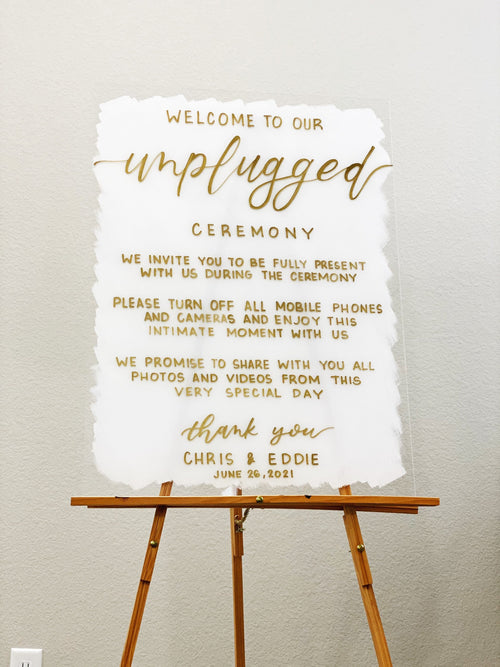 WELCOME TO OUR
unplugged
CEREMONY
WE INVITE YOU TO BE FULLY PRESENT
WITH US DURING THE CEREMONY
PLEASE TURN OFF ALL MOBILE PHONES
AND CAMERAS AND ENJOY THIS
INTIMATE MOMENT WITH US
WE PROMISE TO SHARE WITH YOU ALL
PHOTOS AND VIDEOS FROM THIS
VERY SPECIAL DAY
thank you
CHRIS & EDDIE
JUNE 26, 2021